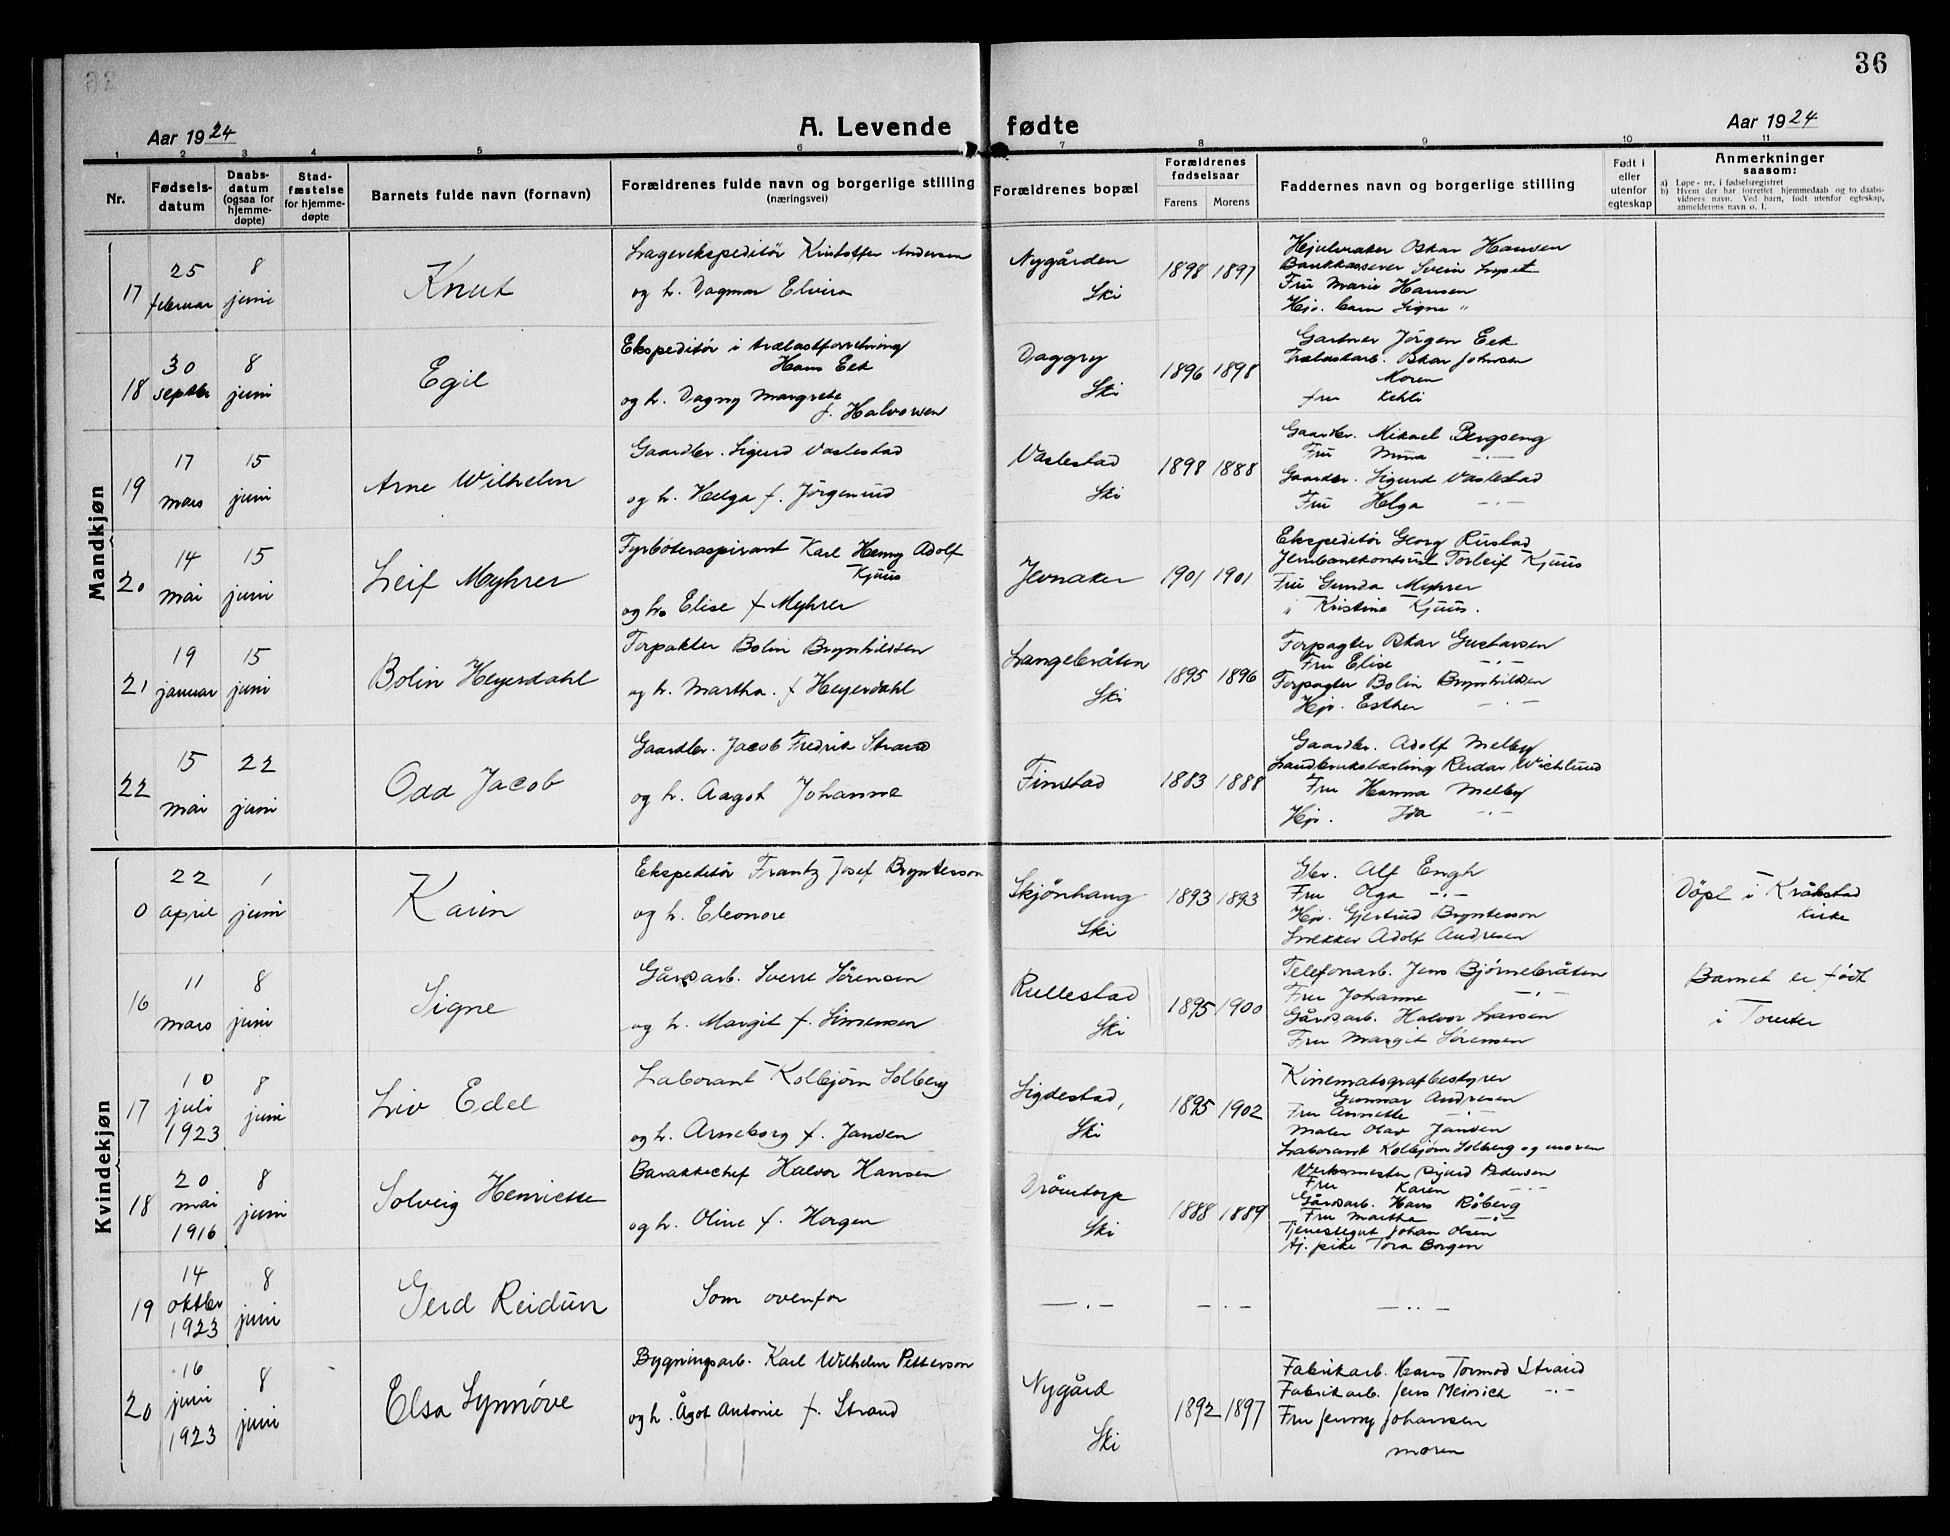 36
Aar 1924
A. Levende fødte
Aar 1924
1 2 3 4 5 6 7 8 9 10 11
Nr.
Fødsels-
datum
Daabs-
datum
(ogsaa for
hjemme-
døpte)
Stad-
fæstelse
for hjemme-
døpte
Barnets fulde navn (fornavn)
Forældrenes fulde navn og borgerlige stilling
(næringsvei)
Forældrenes bopæl
Forældrenes
fødselsaar
Farens Morens
Faddernes navn og borgerlige stilling
Født i
eller
utenfor
egteskap
Anmerkninger
saasom:
a) Løpe-nr. i fødselsregistret
b) Hvem der har forrettet hjemmedaab og to daabs-
vidners navn. Ved barn, født utenfor egteskap,
anmelderens navn o. l.
Mandkjøn
17
25
februar
8
juni
Knut
Lagerekspeditør Kristoffer Andersen
og h. Dagmar Elvira
Nygården
Ski
1898 1897
Hjulmaker Oskar Hansen
Bankkasserer Svein
Fru Marie Hansen
Signe "
18
30
septbr
8
juni
Egil
Ekspeditør i trælastforretning
Hans Eek
og h. Dagny Margrete
f. Halvorsen
Daggry
Ski
1896 1898
Gartner Jörgen Eek
Trælastarb. Oskar Johnsen
Moren
fru Kehli
19
17
mars
15
juni
Arne Wilhelm
Gaardbr. Sigurd Vaslestad
og h. Helga f. Jörgenrud
Vaslestad
Ski
1898 1888
Gaardbr. Mikael Bergseng
Fru Mina —"—
Gaardbr. Sigurd Vaslestad
Fru Helga —"—
20
14
mai
15
juni
Leif Myhrer
Fyrböteraspirant Karl Henry Adolf
Kjuus
og h. Elise f Myhrer
Jevnaker
1901 1901
Ekspeditör Georg Rustad
Jernbanekontorist Torleif Kjuus
Fru Gunda Myhrer
" Kristine Kjuus.
21
19
januar
15
juni
Bolin Heyerdahl
Forpakter Bolin Brynhildsen
og h. Martha. f Heyerdahl
Langebråten
Ski
1895 1896
Forpagter Oskar Gustavsen
Fru Elise —"—
Forpagter Bolin Brynhildsen
Hjv. Esther —"—
22
15
mai
22
juni
Odd Jacob
Gaardbr. Jacob Fredrik Strand
og h. Aagot Johanne
Finstad
1883 1888
Gaardbr. Adolf Melby
Landbrukslærling Reidar Wichlund
Fru Hanna Melby
Hjv. Ida —"—
Kvindekjøn
0
22
april
1
juni
Karin
Ekspeditör Frantz Josef Bryntesson
og h. Eleonore
Skjönhaug
Ski
1893 1893
Gbr. Alf Engh
Fru Olga —"—
Hjv. Gjertrud Bryntesson
Snekker Adolf Andresen
Döpt i Kråkstad
kirke
16
11
mars
8
juni
Signe
Gårdsarb. Sverre Sörensen
og h. Margit f. Simensen
Rullestad
Ski
1895 1900
Telefonarb. Jens Bjørnebråten
Fru Johanne —"—
Gårdsarb. Halvor Larsen
Fru Margit Sörensen
Barnet er født
i Tomter
17
10
juli
1923
8
juni
Liv Edel
Laborant Kolbjörn Solberg
og h. Arneborg f. Jansen
Sigdestad,
Ski
1895 1902
Kinematografbestyrer
Gunnar Andresen
Fru Annette —"—
Maler Olav Jansen
Laborant Kolbjörn Solberg og moren
18
20
mai
1916
8
juni
Solveig Henriette
Barakkechef Halvor Hansen
og h. Oline f. Horgen
Drömtorp
Ski
1888 1889
Verksmester Sigurd Pedersen
Fru Karen —"—
Gårdsarb. Hans Röberg
Fru Martha —"—
Tjenestegut Johan Olsen
Tj. pike Tora Borgen
19
14
oktbr
1923
8
juni
Gerd Reidun
Som ovenfor
— . —
— . —
— .. —
20
16
juni
1923
8
juni
Elsa Synnöve
Bygningsarb. Karl Wilhelm Petterson
og h. Ågot Antonie f. Strand
Nygård
Ski
1892 1897
Fabrikarb. Hans Tormod Strand
Fabrikarb. Jens Meinich —"—
Fru Jenny Johansen
moren